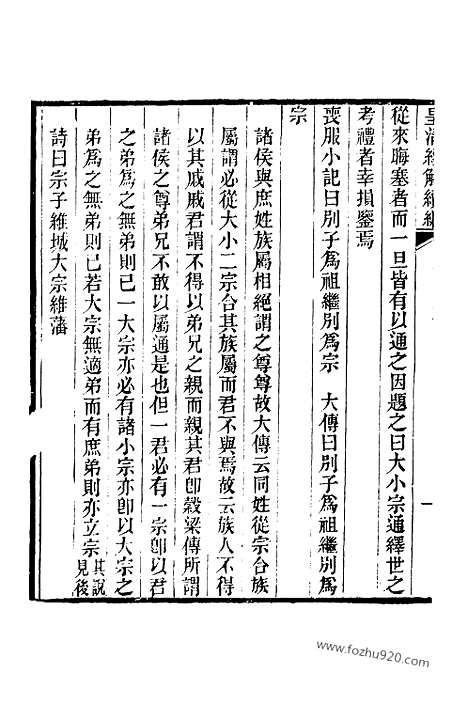 皇清經解續編
從來晦塞者而一旦皆有以通之因題之曰大小宗通繹世之
考禮者幸損鑒焉
喪服小記曰別子為祖繼別為宗　大傳曰別子為祖繼別為
宗
諸侯與庶姓族屬相絕謂之尊尊故大傳云同姓從宗合族
屬謂必從大小二宗合其族屬而君不與焉故云族人不得
以其戚戚君謂不得以弟兄之親而親其君卽穀梁傳所謂
諸侯之尊弟兄不敢以屬通是也但一君必有一宗卽以君
之弟為之無弟則已一大宗亦必有諸小宗亦卽以大宗之
弟為之無弟則已若大宗無適弟而有庶弟則亦立宗其說見後
詩曰宗子維城大宗維藩
一
www.fozhu920.com